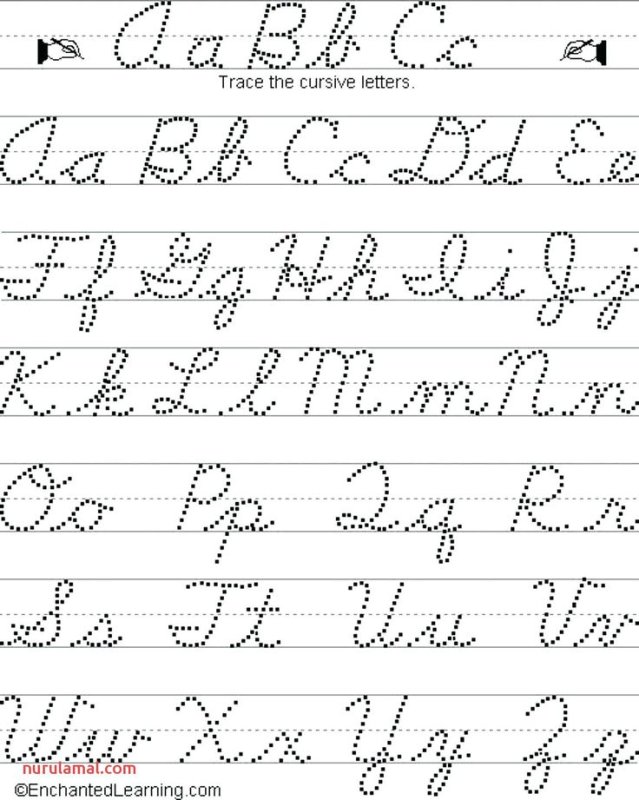 Aa Bb Cc
Trace the cursive letters.
Aa Bb Cc Dd Ee
Ff Gg Hh Ii Jj
Kk Ll Mm Nn
Oo Pp Qq Rr
Ss Tt Uu Vv
Ww Xx Yy Zz
nurulamal.com
©EnchantedLearning.com